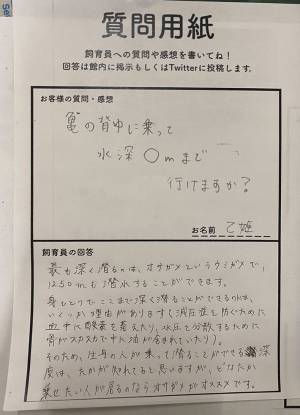 質問用紙
飼育員への質問や感想を書いてね！
回答は館内に掲示もしくはTwitterに投稿します。
お客様の質問・感想
亀の背中に乗って
水深〇mまで
行けますか？
お名前 乙姫
飼育員の回答
最も深く潜るのは、オサガメというウミガメで、
1250mも潜水することができます。
身ひとつでここまで深く潜ることができるのは、
いくつか理由がありますく減圧症を防ぐために
血中に酸素を蓄えたり、水圧を分散するために
骨がスカスカで中に油が含まれていたり)。
そのため、生身の人が乗って潜ることができる深
度は、たかが知れてると思いますが、どなたか
乗せたい人が居るのならオサガメがオススメです。